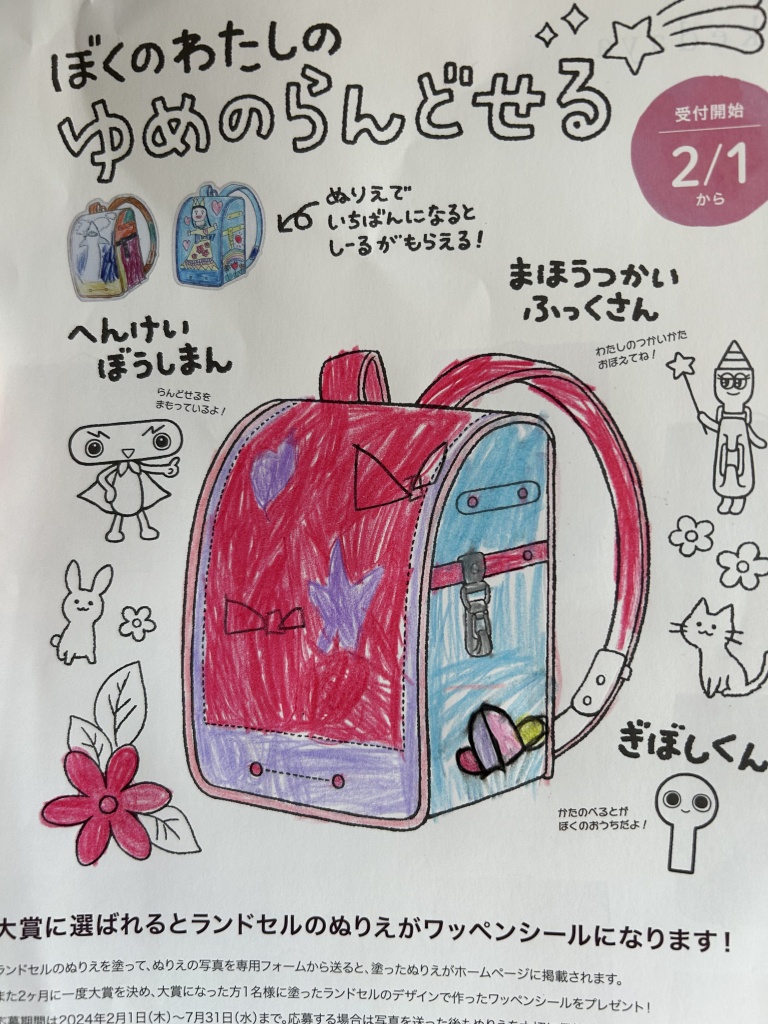 ぼくのわたしの
ゆめのらんどせる
受付開始
2/1
から
ぬりえで
いちばんになると
しーるがもらえる!
まほうつかい
ふっくさん
わたしのつかいかた
おぼえてね!
へんけい
ぼうしまん
らんどせるを
まもっているよ!
ぎぼしくん
かたのべるとが
ぼくのおうちだよ!
大賞に選ばれるとランドセルのぬりえがワッペンシールになります!
ランドセルのぬりえを塗って、ぬりえの写真を専用フォームから送ると、塗ったぬりえがホームページに掲載されます。
また2ヶ月に一度大賞を決め、大賞になった方1名様に塗ったランドセルのデザインで作ったワッペンシールをプレゼント!
応募期間は2024年2月1日(木)〜7月31日(水)まで。応募する場合は写真を送った後もぬりえを